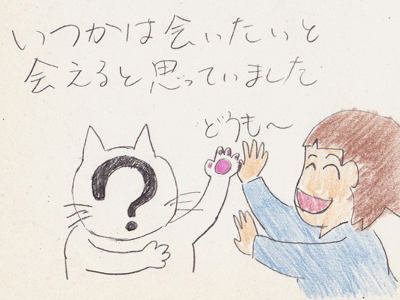 いつかは会いたいと
会えると思っていました
どうも〜
?